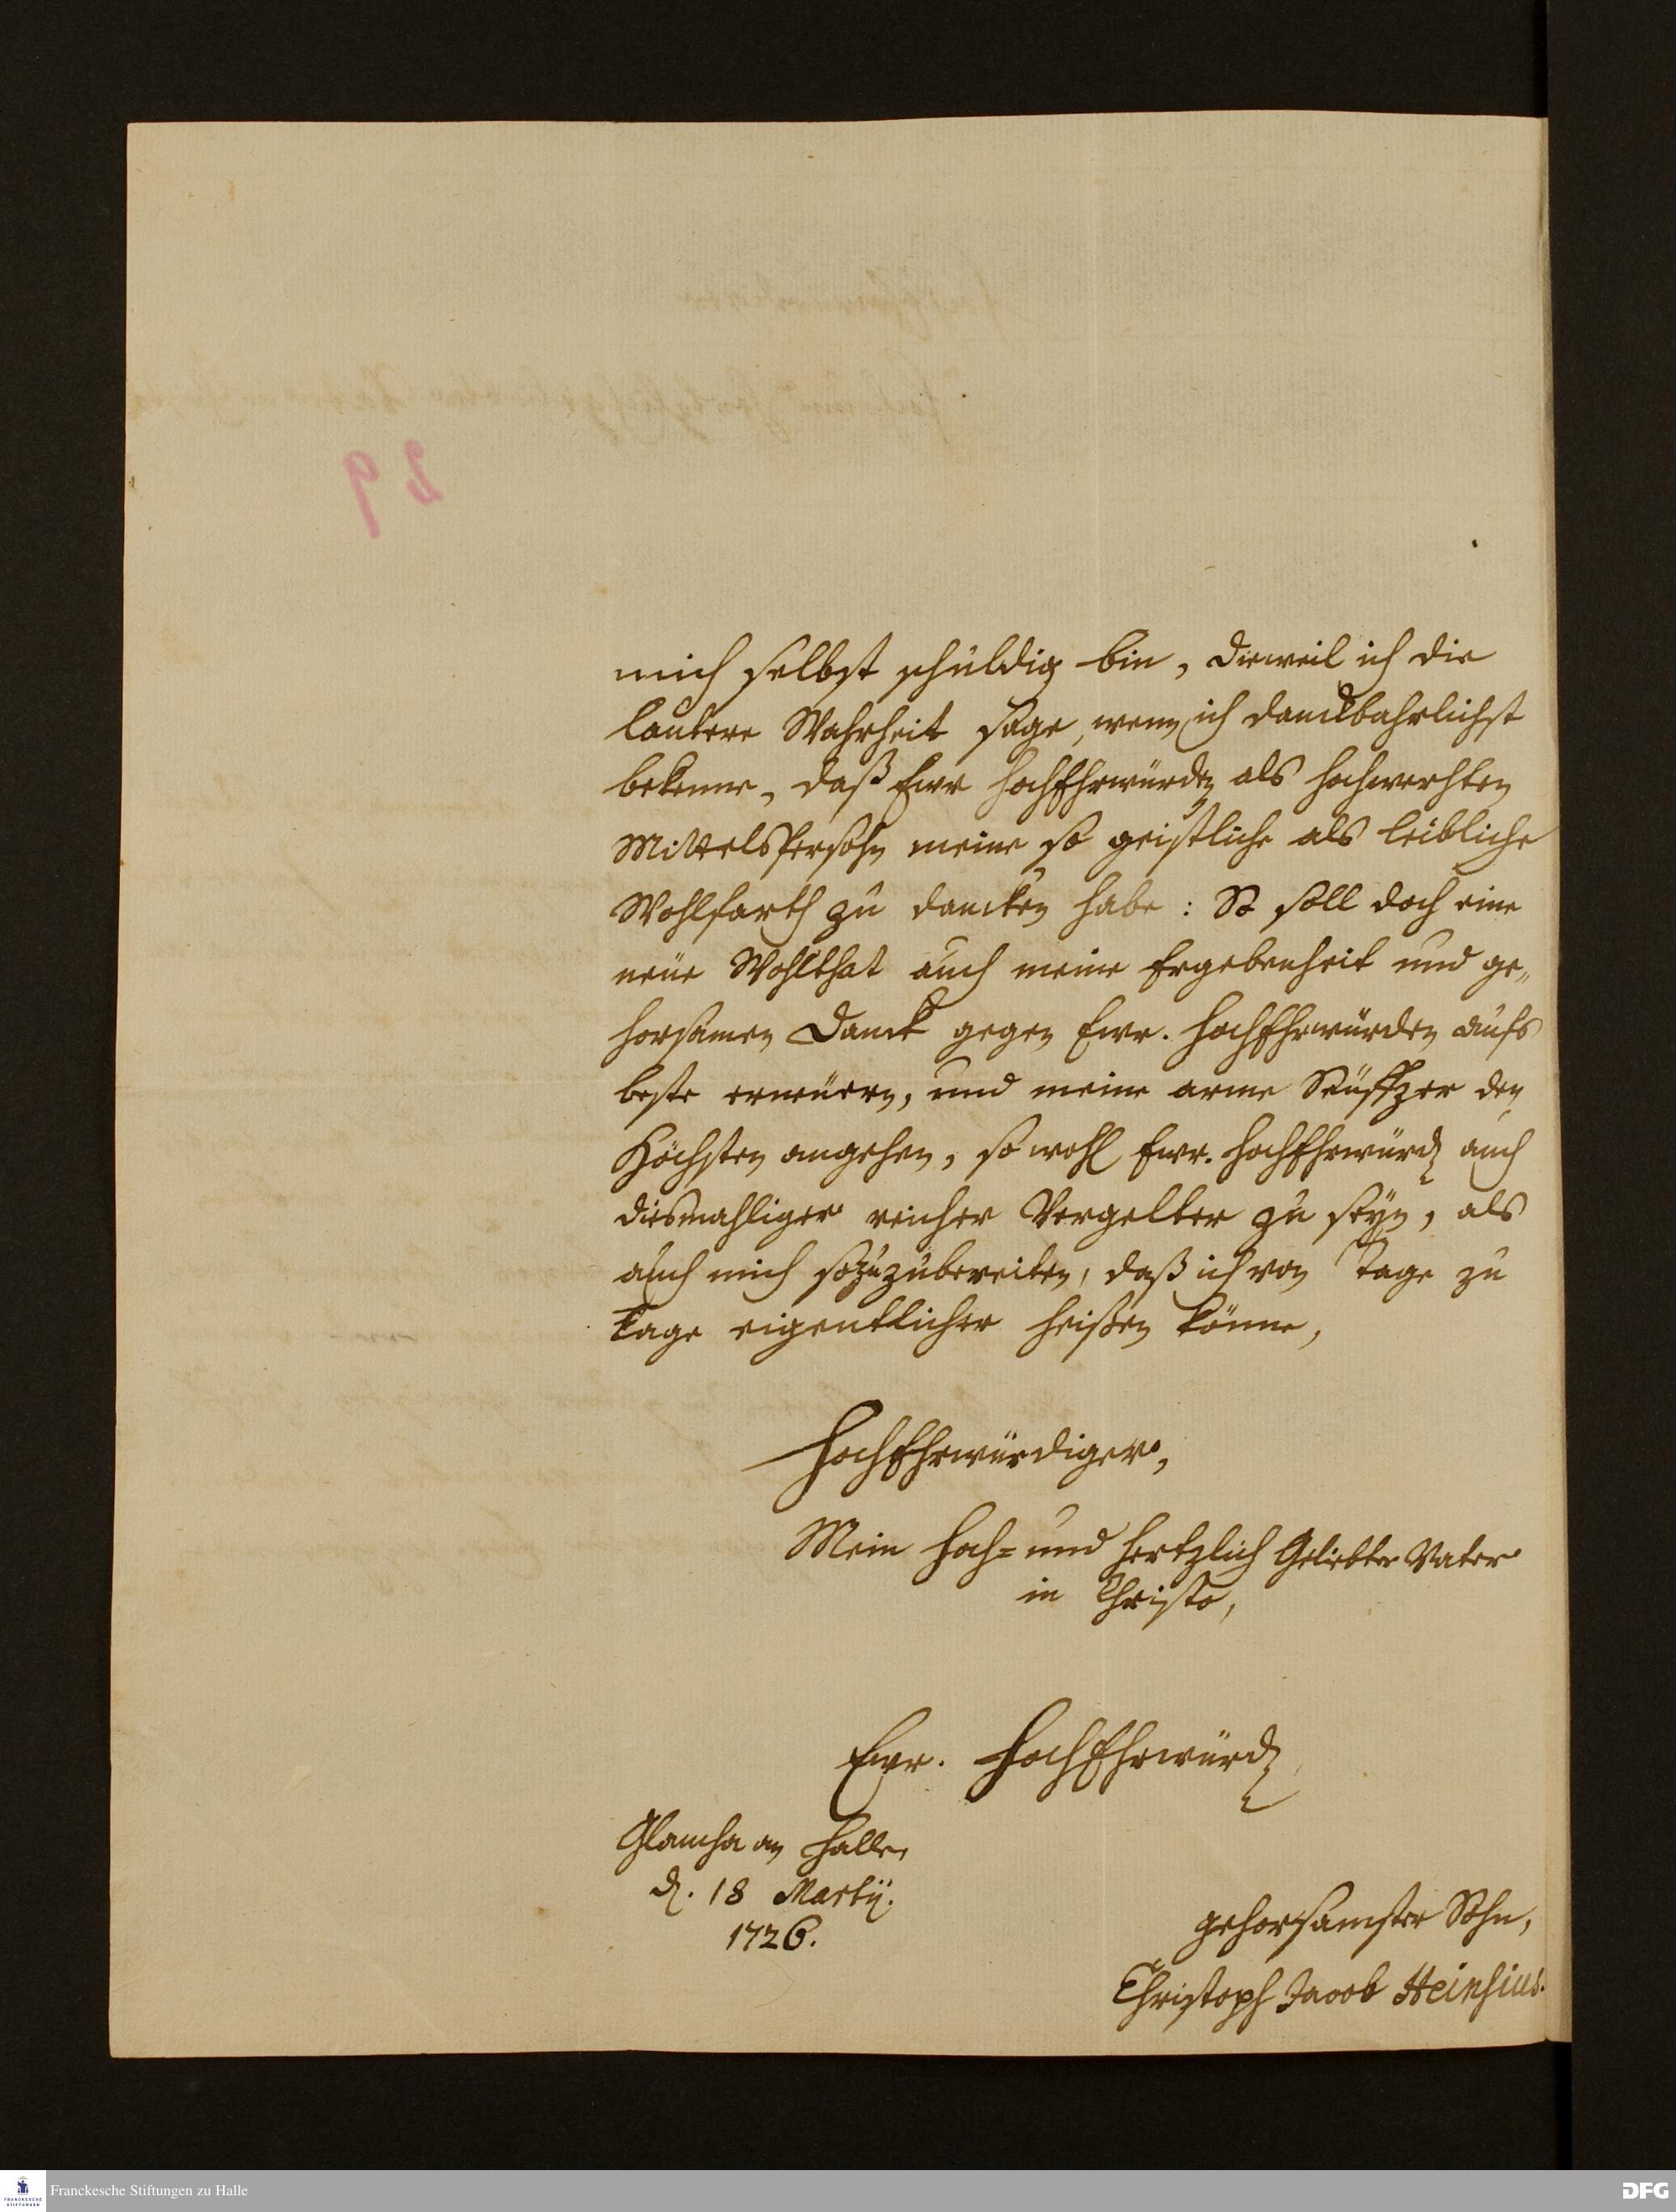 mich selbst schuldig bin, dieweil ich die
lautere Wahrheit sage, wenn ich danckbahrlichst
bekenne, daß Ewr HochEhrwürden als hochwerthen
MittelsPersohn meine so geistliche als leibliche
Wohlfarth zu dancken habe: So soll doch eine
neüe Wohlthat auch meine Ergebenheit und ge„
horsamen Danck gegen Ewr. HochEhrwürden aufs
beste erneüern, und meine arme Seüffzer den
Höchsten angehen, so wohl Ewr. HochEhrwürd. auch
diesmahliger reicher Vergelter zu seyn, als
auch mich so zuzubereiten, daß ich von Tage zu
tage eigentlicher heißen könne,
HochEhrwürdiger,
Mein Hoch= und hertzlich Geliebter Vater
in Christo,
Ewr. HochEhrwürd.
Glaucha an Halle,
d. 18 Martii.
1726.
gehorsamster Sohn,
Christoph Jacob Heinsius.
29
Franckesche Stiftungen zu Halle
DFG